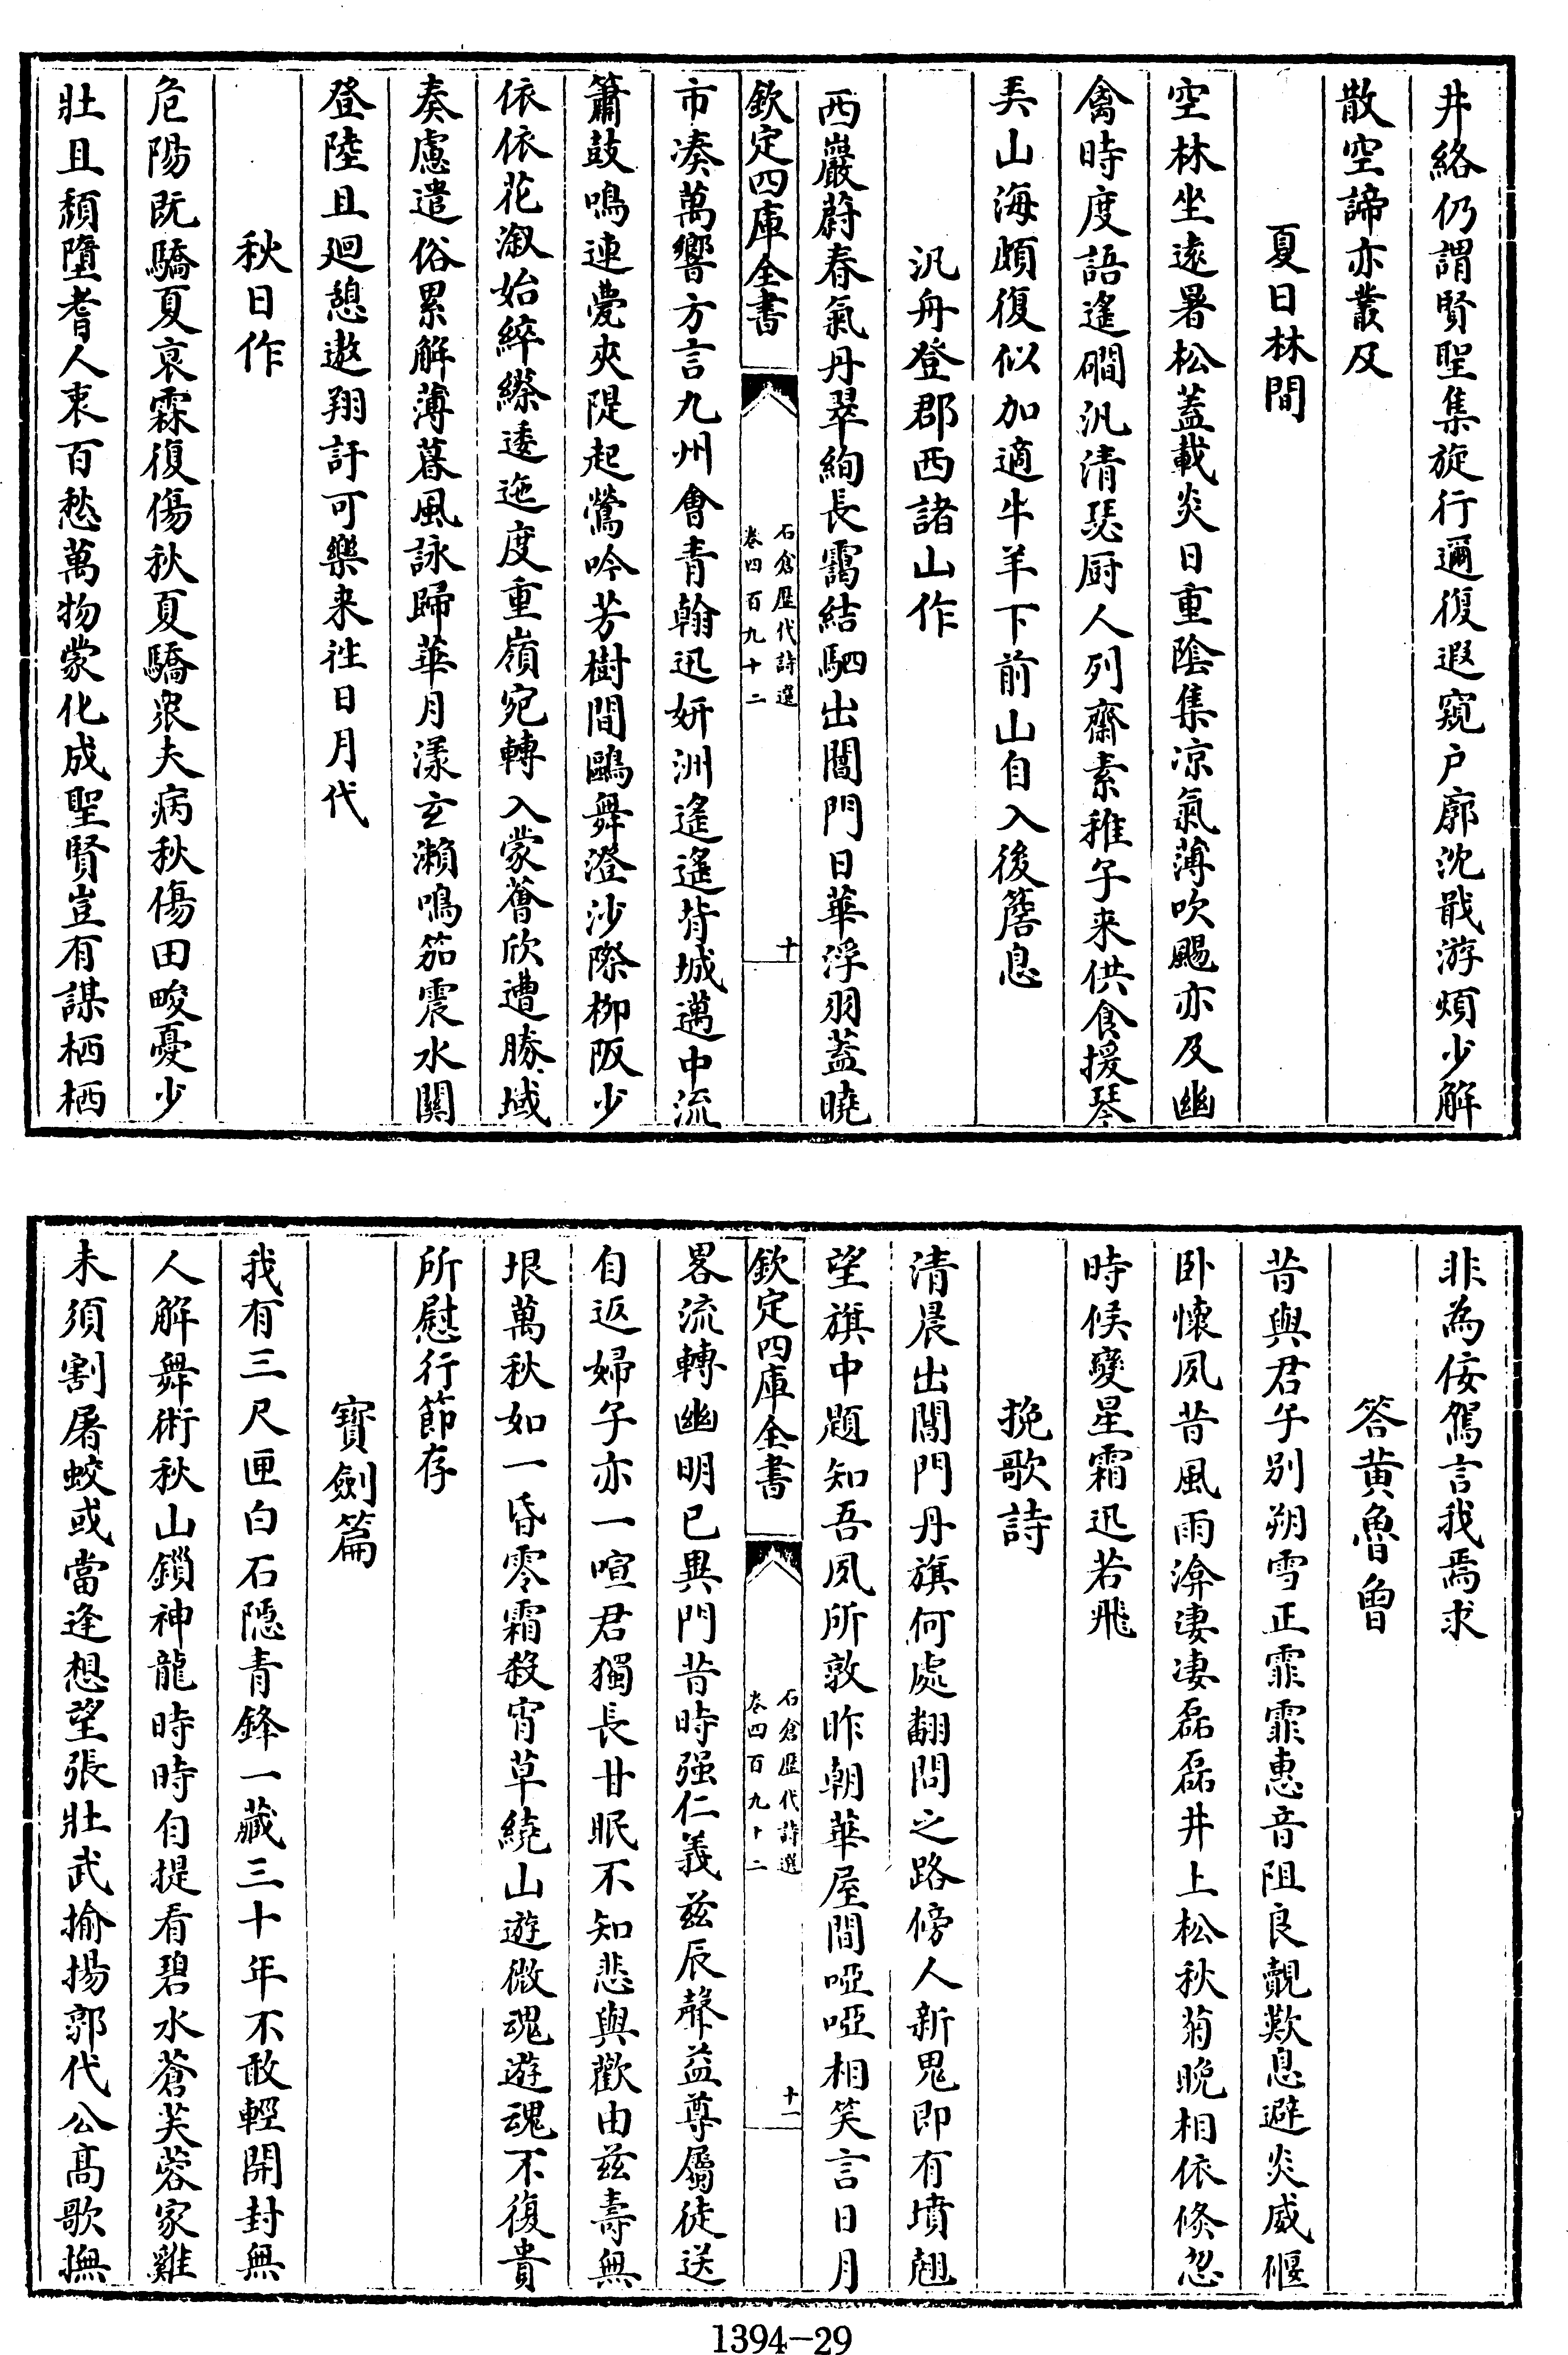 井絡仍謂賢聖集旋行邇復遐窺户廓沈戢游煩少解
散空諦亦叢及
夏日林間
空林坐遠暑松蓋載炎日重陰集凉氣薄吹颺亦及幽
禽時度語遙磵汎清瑟厨人列齋素稚子来供食援琴
美山海頗復似加適牛羊下前山自入後簷息
汎舟登郡西諸山作
西巖蔚春氣丹翠絢長靄結駟出閶門日華浮羽蓋曉
欽定四庫全書
石倉歷代詩選
卷四百九十二
十
市湊萬響方言九州會青翰迅妍洲遙遙背城邁中流
簫鼓鳴連甍夾隄起鶯吟芳樹間鷗舞澄沙際柳阪少
依依花溆始綷縩逶迤度重嶺宛轉入蒙薈欣遭勝域
奏慮遣俗累解薄暮風詠歸華月漾玄瀨鳴笳震水關
登陸且廻憩遨翔詎可樂来往日月代
秋日作
危陽既驕夏哀霖復傷秋夏驕衆夫病秋傷田畯憂少
壯且頽墮耆人衷百愁萬物蒙化成聖賢豈有謀栖栖
非為佞駕言我焉求
答黄魯曾
昔與君子别朔雪正霏霏惠音阻良覿歎息避炎威偃
卧懷夙昔風雨渰凄凄磊磊井上松秋菊晚相依倏忽
時候變星霜迅若飛
挽歌詩
清晨出閶門丹旗何處翻問之路傍人新鬼即有墳翹
望旗中題知吾夙所敦昨朝華屋間啞啞相笑言日月
欽定四庫全書
石倉歷代詩選
卷四百九十二
十一
畧流轉幽明已異門昔時强仁義兹辰聲益尊屬徒送
自返婦子亦一喧君獨長甘眠不知悲與歡由兹壽無
垠萬秋如一昏零霜殺宵草繞山遊微魂遊魂不復貴
所慰行節存
寶劍篇
我有三尺匣白石隱青鋒一藏三十年不敢輕開封無
人解舞術秋山鎖神龍時時自提看碧水蒼芙蓉家雞
未須割屠蛟或當逢想望張壯武揄揚郭代公髙歌撫
1394-29